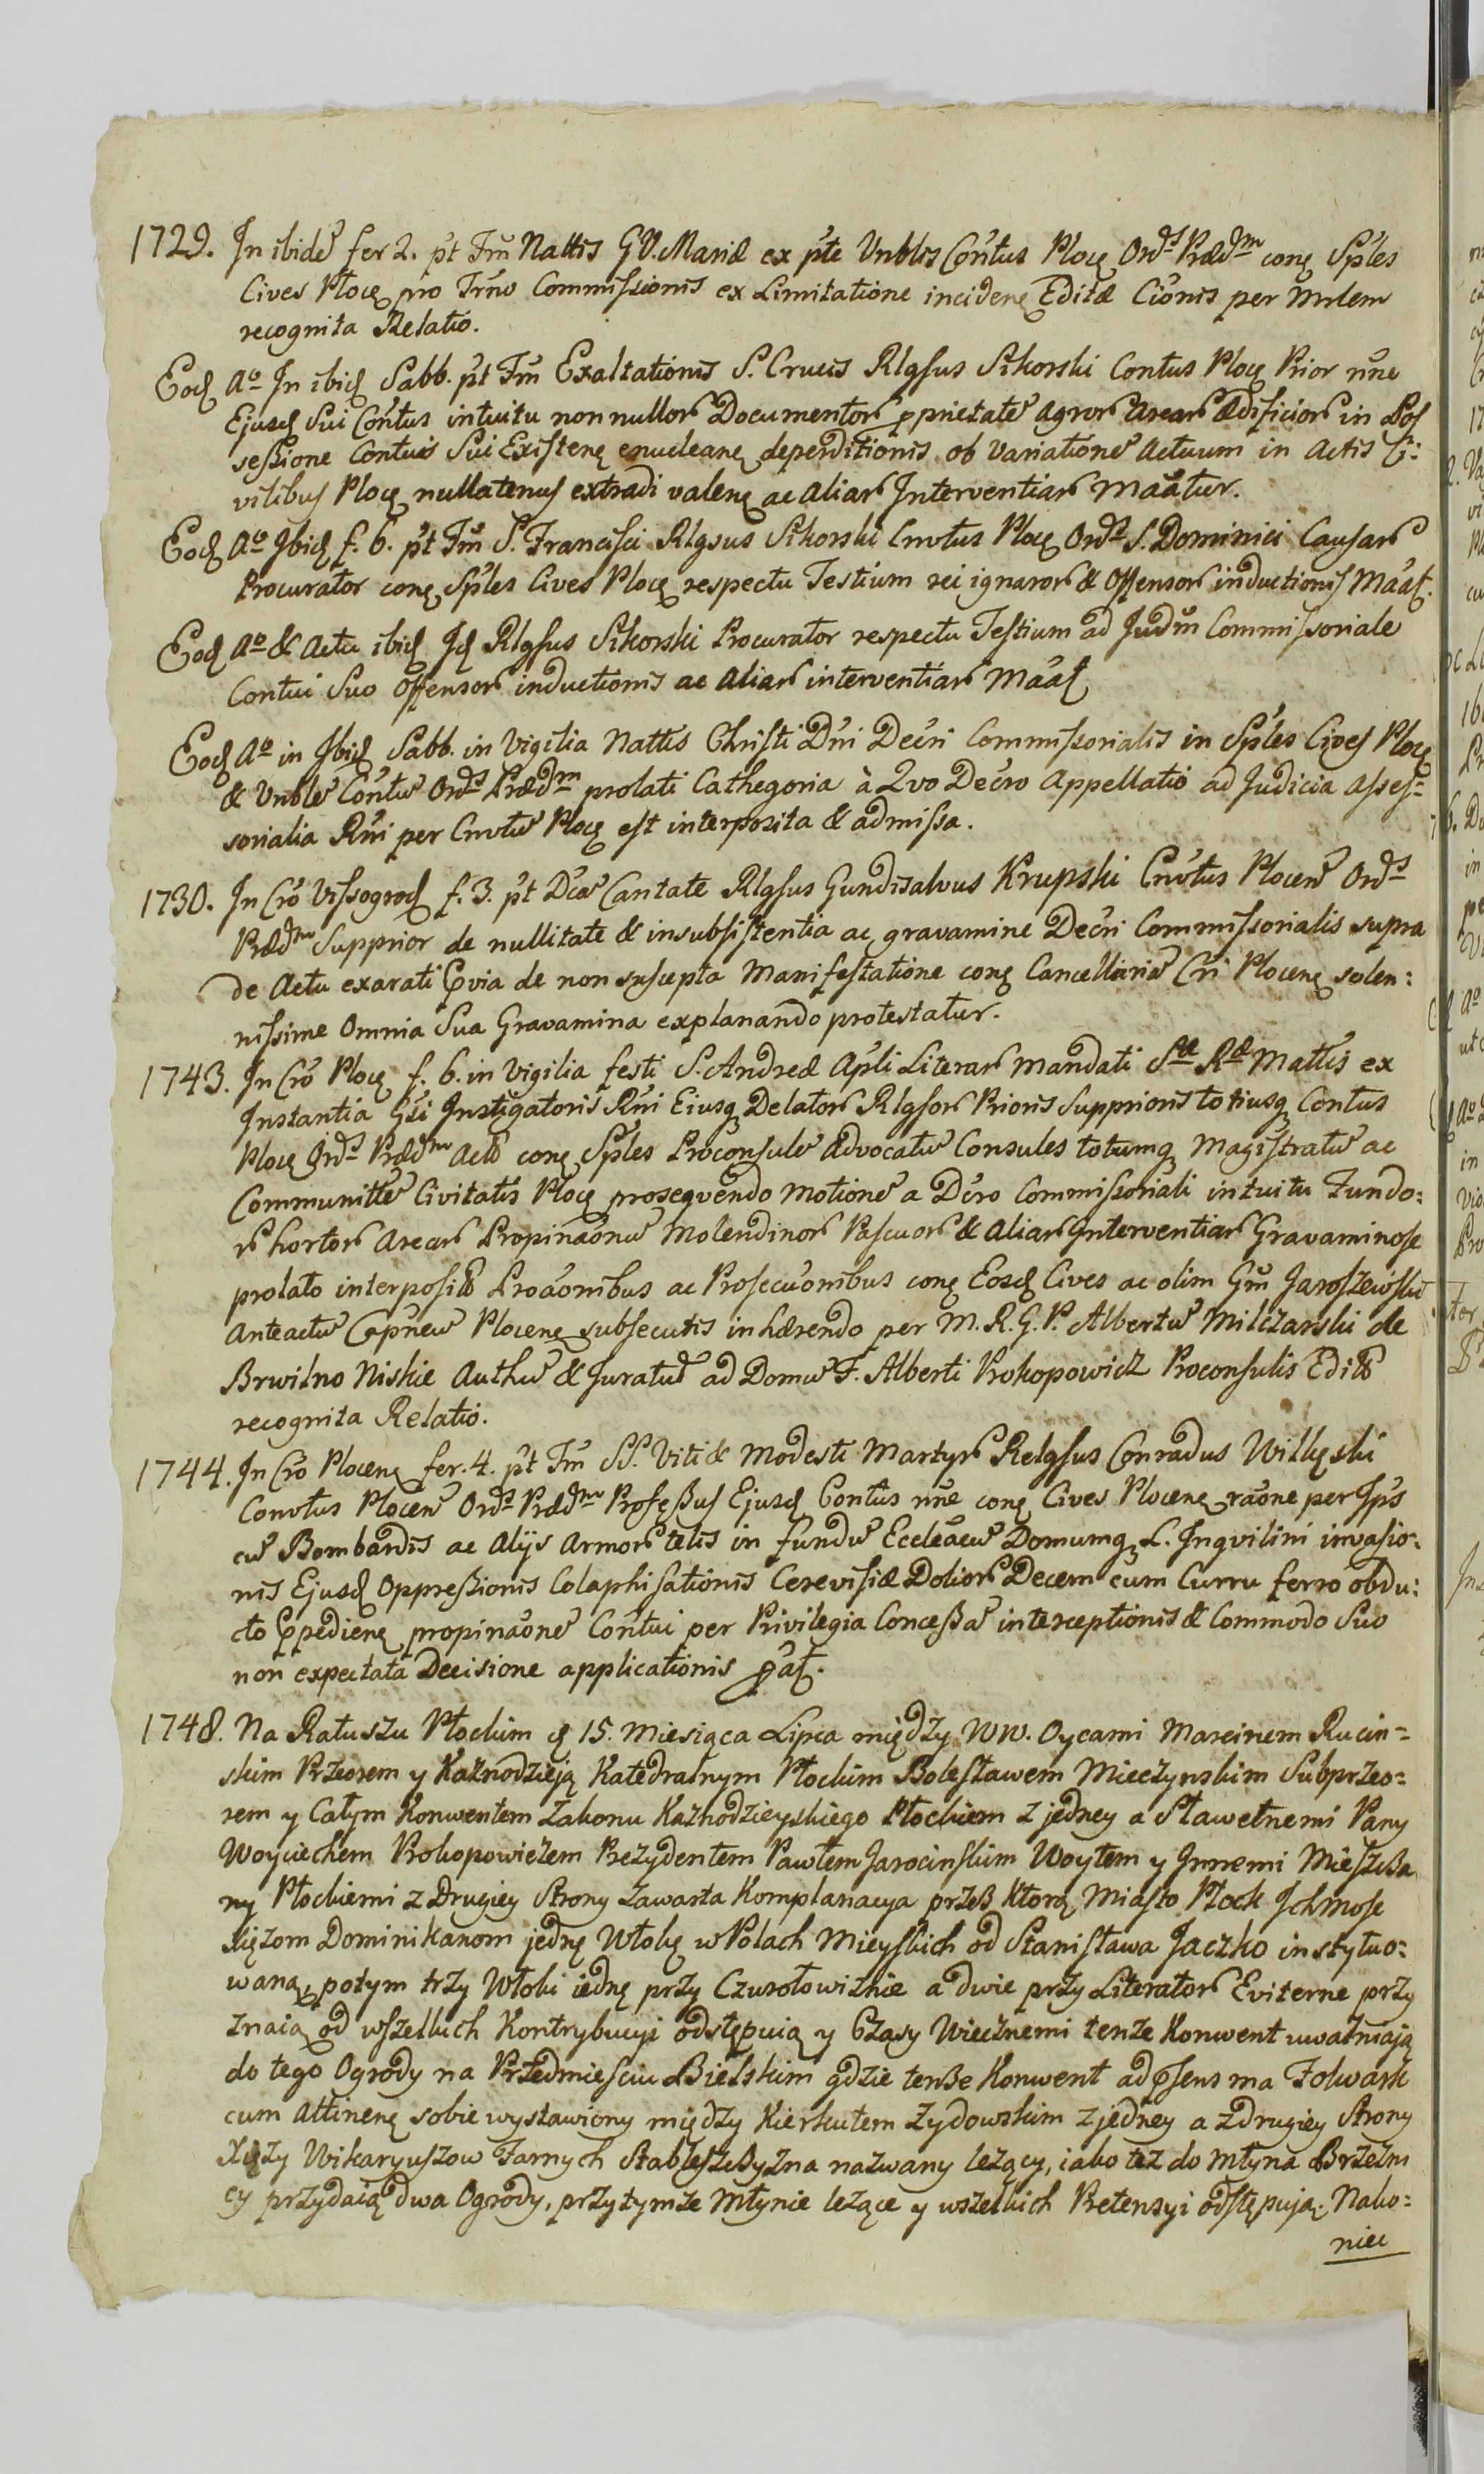 1729. In ibidē fer 2. p̄t Fm̄ Nattis G V. Mariæ ex p̄te Vnblis Cōntus Ploc̨ Ord̄s Præd̄m conȩ Sp̄les
Cives Płocȩ pro Trn̄o Commissionis ex Limitatione incidenȩ Editæ Ciōnis per Mrlem
recognita Relatio.
Eod̨ Ao In ibid̨ Sabb. p̄t Fm̄ Exaltationis S. Crucis Rlgsus Sikorski Contus Plocȩ Prior nn̄e
Ejusd̨ Sui Cōntus intuitu non nullor Documentor pprietatē agror Arear Ædificior in Pos
sessione Contuis Sui Existenȩ enucleanȩ deperditionis ob Variationē Actuum in Actis Ci:
vilibus Plocȩ nullatenus extradi valenȩ ac Aliar Interventiar Maātur.
Eod̨ Ao Ibid̨ f. 6. p̄t Fm̄ S. Francisci Rlgsus Sikorski Cnvtus Plocȩ Ord̄s S. Dominici Causar
Procurator conȩ Sp̄les Cives Plocȩ respectu Testium rei ignaror & Offensor inductionis Maāt.
Eod̨ Ao & Actu ibid̨ Id̨ Rlgsus Sikorski Procurator respectu Testium ad Judm̄ Commissoriale
Contui Suo Offensor inductionis ac Aliar interventiar Maāt
Eod̨ Ao in Ibid̨ Sabb. in Vigilia Nattis Christi Dn̄i Decr̄i Commissorialis in Sp̄les Cives Plocȩ
& Vnblē Cōntū Ord̄s Præd̄m prolati Cathegoria à Quo Decr̄o Appellatio ad Judicia Asses=
sorialia Rn̄i per Cnvtū Plocȩ est interposita & admissa.
1730. In Crō Vissogrod̨ f. 3. p̄t Dcā Cantate Rlgsus Gundisalvus Krupski Cnvtus Plocen̄ Ord̄s
Præd̄m Supprior de nullitate & insubsistentia ac gravamine Decr̄i Commissorialis supra
de Actu exarati Pvia de non suscepta Manifestatione conȩ Cancellariā Crī Plocenȩ solen:
nissime Omnia Sua Gravamina explanando protestatur.
1743. In Crō Plocȩ f. 6. in Vigilia festi S. Andreæ Apl̄i Literar Mandati Sæ Ræ Mattis ex
Instantia Gsī Instigatoris Rn̄i Eiusq̨ Delator Rlgsor Prioris Supprioris totiusq̨ Contus
Plocȩ Ord̄s Præd̄m Actō conȩ Sp̄les Proconsulē Advocatū Consules totumq̨ Magistratū ac
Communittē Civitatis Plocȩ proseqvendo Motionē a Dcr̄o Commissoriali intuitu Fundo:
r hortor Arear Propinaōnū Molendinor Pascuor & Aliar Interventiar Gravaminose
prolato interpositō Proāonibus ac Prosecuōnibus conȩ Eosd̨ Cives ac olim Gm̄ Jaroszewskū
Anteactū Cpn̄eū Plocenȩ subsecutis inhærendo per M. R. G. P. Albertū Milczarski de
Brwilno Niskie Authū & Juratū ad Domū F. Alberti Prokopowicz Proconsulis Editō
recognita Relatio.
1744. In Crō Plocenȩ fer. 4. p̄t Fm̄ SS. Viti & Modesti Martyr Relgsus Conradus Wilkȩski
Convtus Plocen̄ Ord̄s Præd̄m Professus Ejusd̨ Contus nn̄e conȩ Cives Plocenȩ raōne per Ip̄s
cū Bombardis ac Alijs Armor telis in fundū Eccleācū Domumq̨ L. Inqvilini invasio:
nis Ejusd̨ Oppressionis Colaphisationis Cerevisiæ Dolior Decem cum Curru ferro obdu:
cto Ppedienȩ propinaōnē Cōntui per Privilegia Concessā interceptionis & Commodo Suo
non expectata Decisione applicationis pāt.
1748. Na Ratuszu Płockim d̨ 15. Miesiąca Lipca między WW. Oycami Marcinem Rucin=
skim Przeorem y Kaznodzieją Katedralnym Płockim Bolesławem Mieczynskim Subprzeo=
rem y Całym Konwentem Zakonu Kaznodzieyskiego Płockiem z jedney a Sławetnemi Pany
Woyciechem Prokopowiczem Prezydentem Pawłem Jarocinskim Woytem y Innemi Mieszcza
ny Płockiemi z Drugiey Strony Zawarta Komplanacya przez Ktorą Miasto Płock Ichmose
Xięzom Dominikanom jednę Włokę w Polach Mieyskich od Stanisława Jaczko instytuo:
waną, potym trzy Włoki iednę przy Czurołowiznie a dwie przy Literator Eviterne przy
znaią od wszelkich Kontrybucyi odstępuią y Czasy Wiecznemi tenze Konwent uwalniają
do tego Ogrody na Przedmiesciu Bielskim gdzie tenze Konwent ad Psens ma Folwark
cum Attinenȩ sobie wystawiony między Kierkutem Zydowskim z jedney a z drugiey Strony
Xięzy Wikaryuszow Farnych Stableszczyzna nazwany lezący, iako tez do Młyna Brzezni
cy przydaią dwa Ogrody, przytymze Młynie lezące y wszelkich Pretensyi odstępują. Nako=
niec